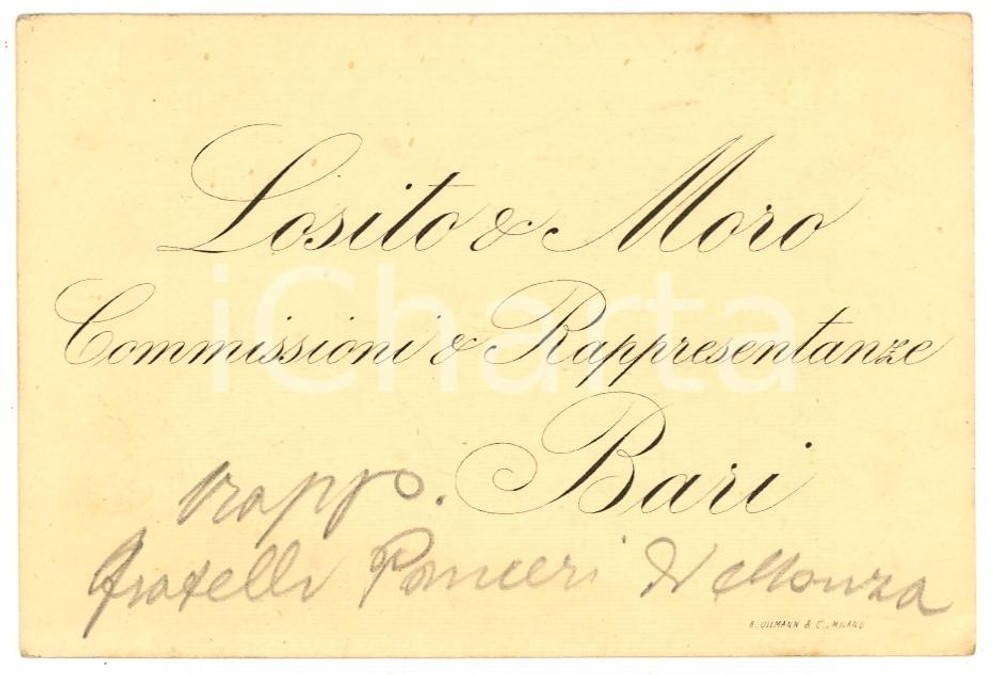 Losito & Moro
Commissioni & Rappresentanze
iCharta
Bari
rapp.
Fratelli di Monza
A. ULLMANN & C., MILANO